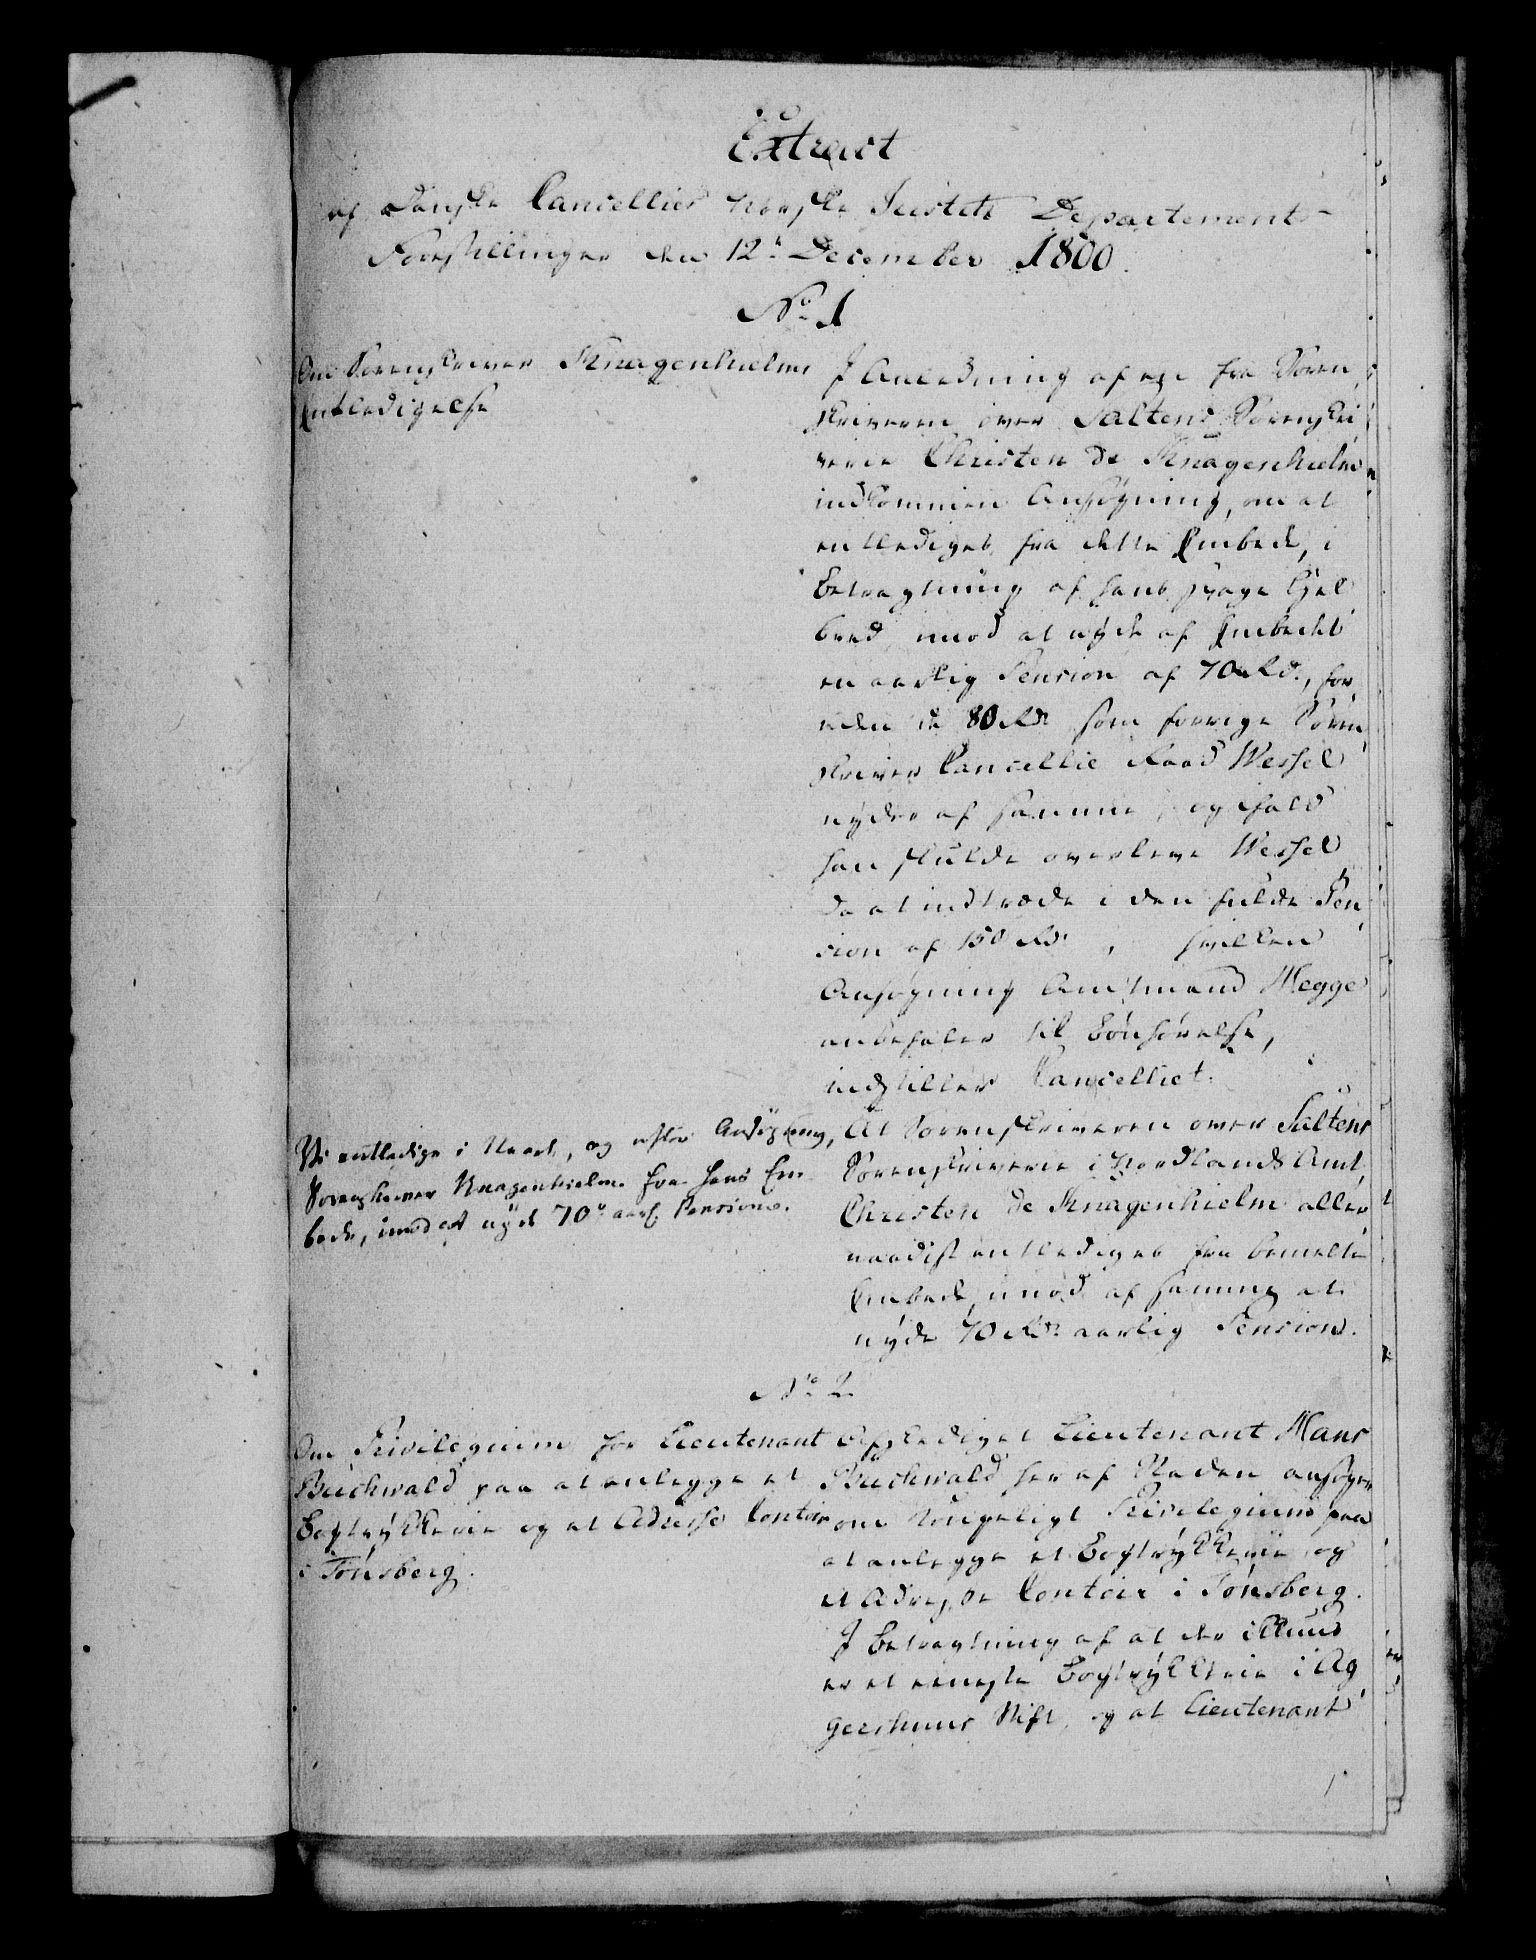 Extract
af Danske Cancellies Norske Justits Departements
Forestillinger den 12te December 1800.
No. 1
Om Sorenskriver Knagenhielms
Entledigelse
I Anledning af en fra Soren
skriveren over Saltens Sorenskri
verie Christen de Knagenhielm
indkommen Ansøgning, om at
entlediges fra dette Embede, i
Betragtning af hans svage Hel
bred mod at nyde af Embedet
en aarlig Pension af 70 Rd., for
uden de 80 Rd. som forrige Soren
skriver Cancellie Raad Wessel
nyder af samme, og ifald
han skulde overleve Wessel
da at indtræde i den fulde Pen
sion af 150 Rd., hvilken
Ansøgning Amtmand Hegge
anbefaler til Bønhørelse,
indstiller Cancelliet:
At Sorenskriveren over Saltens
Sorenskriverie i Nordlands Amt
Christen de Knagenhielm aller
naadist entlediges fra bemelte
Embede, imod af samme at
nyde 70 Rd. aarlig Pension.
Vi entledige i Naade, og efter Ansøgning,
Sorenskriver Knagenhielm fra hans Em
bede, imod at nyde 70 rd aarl. Pension.
No. 2.
Om Privilegium for Lieutenant
Buchwald paa at anlegge et
Bogtrykkerie og et Adresse Contoir
i Tønsberg.
Afskediget Lieutenant Hans
Buchwald her af Staden ansøger
om Kongeligt Privilegium paa
at anlegge et Bogtrykkerie og
et Adresse Contoir i Tønsberg.
I Betragtning af at der ikkuns
er et eneste Bogtrykkerie i Ag
gershuus Stift, og at Lieutenant